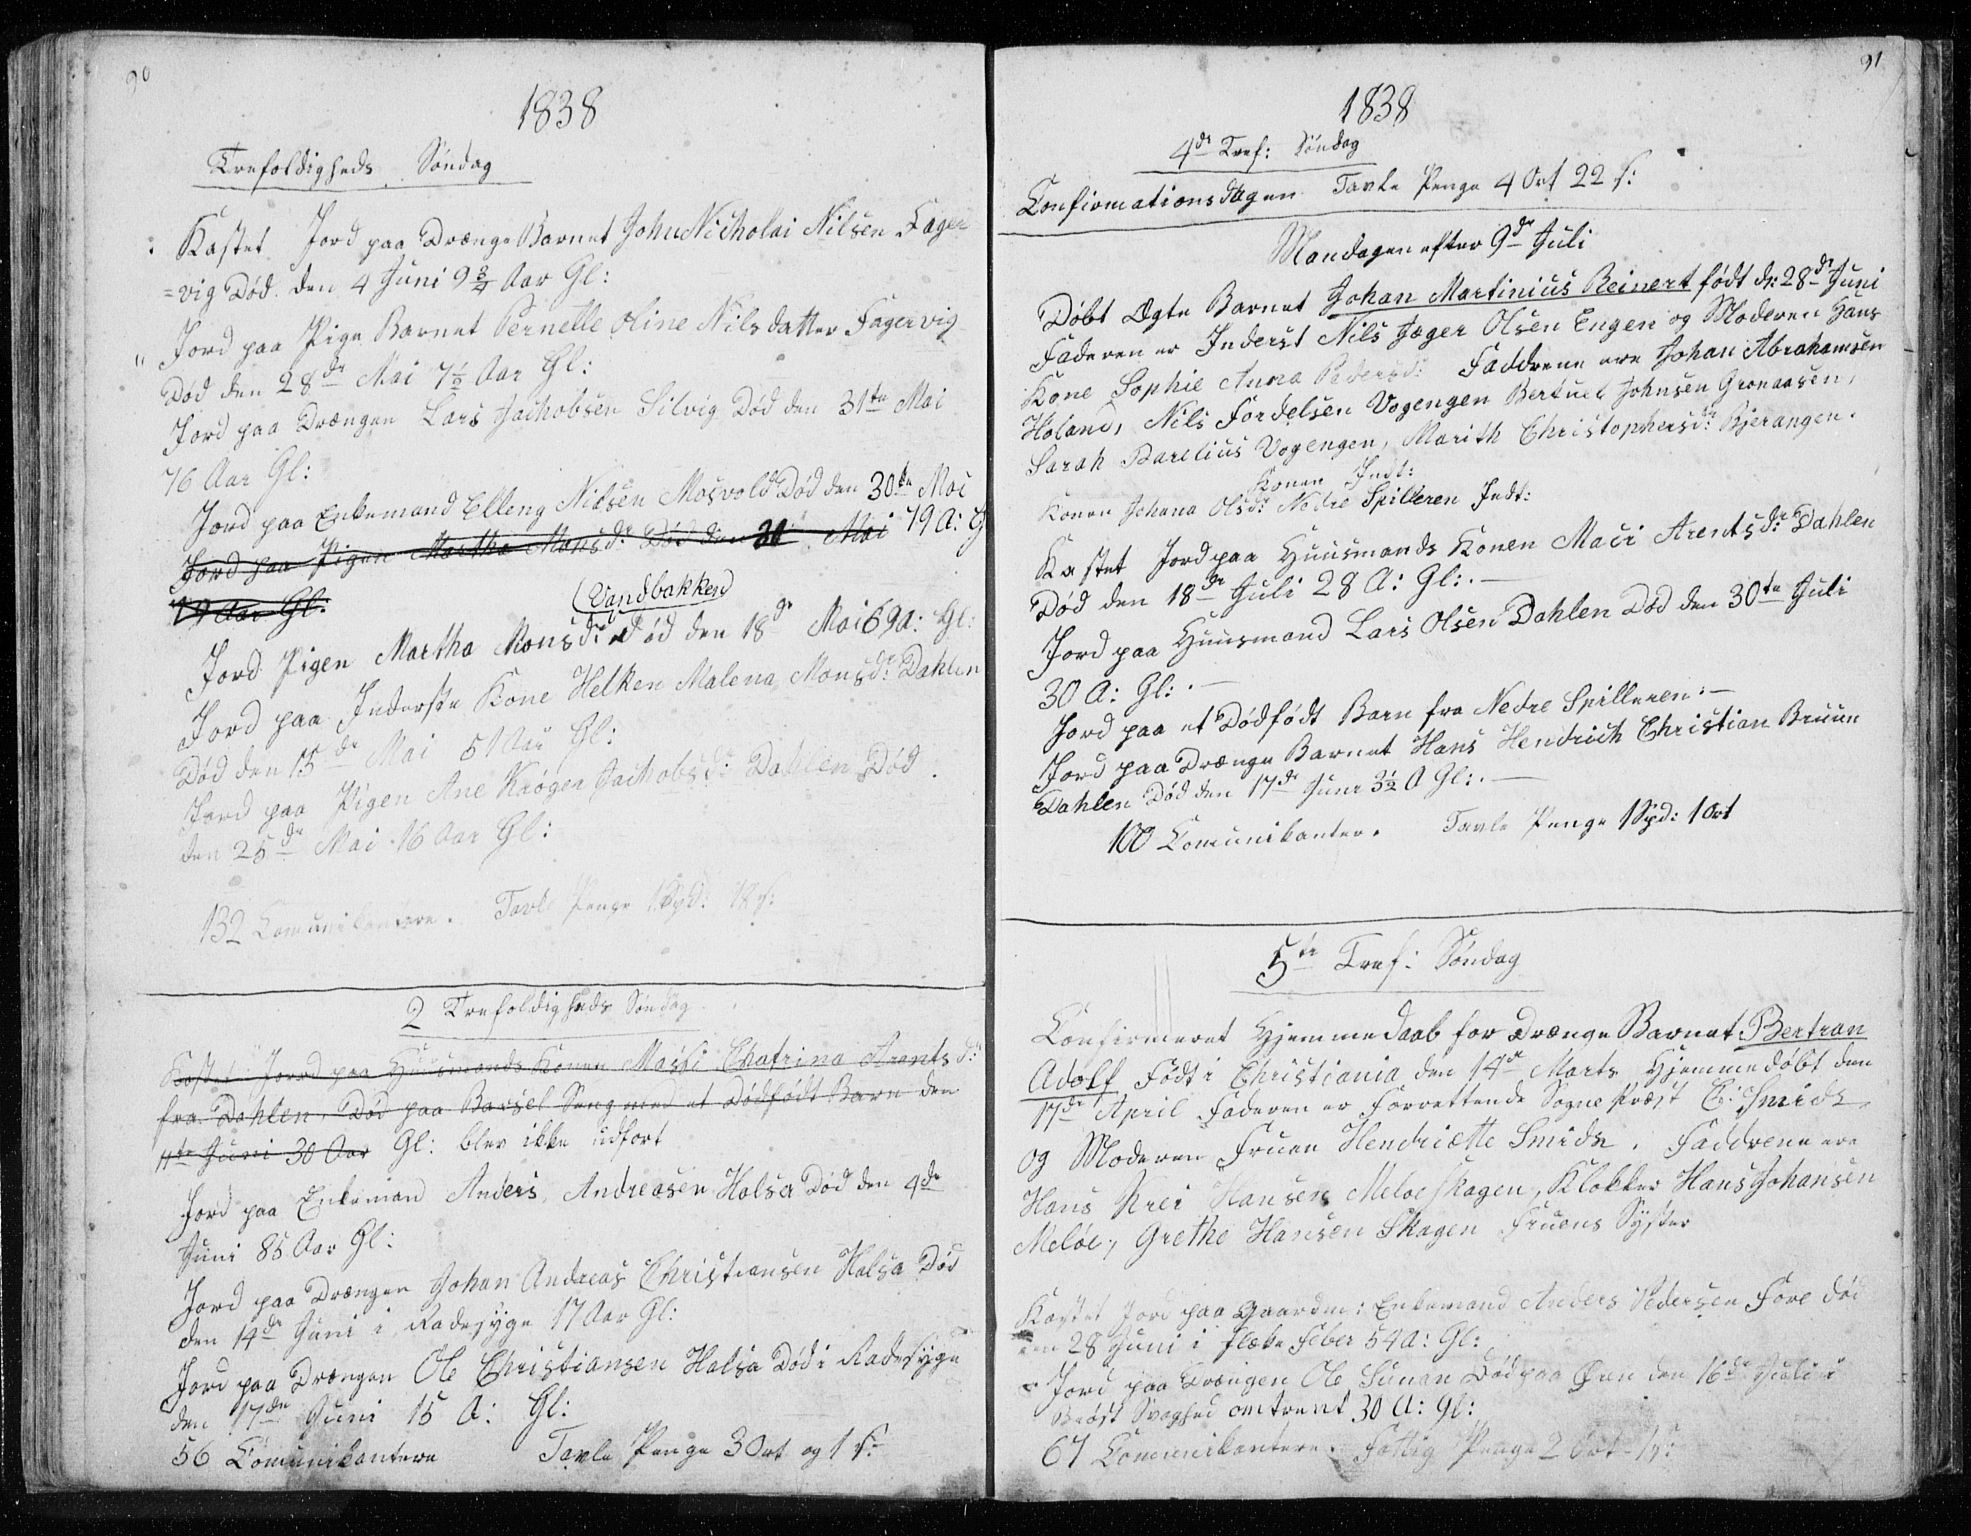 90
1838
Trefoldigheds Søndag
Kastet Jord paa Drænge Barnet John Nicholai Nilsen Fager
=vig Død den 4 Juni 9 3/4 Aar Gl:
" Jord paa Pige Barnet Pernelle Oline Nilsdatter Fagervig
Død den 28de Mai 7 1/2 Aar Gl:
Jord paa Drængen Lars Jachobsen Silvig Død den 31te Mai
76 Aar Gl:
Jord paa Enkemand Elleng Nilsen Mosvold Død den 30te Mai
Jord paa Pigen Martha Monsdr Død den Mai 79 A: G
79 Aar Gl:
(Vandbakken)
Jord Pigen Martha Monsdr: Død den 18de Mai 69 A: Gl:
Jord paa Inderste Kone Helken Malena Monsdr: Dahlen
Død den 15de Mai 51 Aar Gl:
Jord paa Pigen Ane Krøger Jachobsd: Dahlen Død
den 25de Mai 16 Aar Gl:
132 Comunikantere. Tavle Penge 1 Spd: 12 s:
2 Trefoldigheds Søndag
Kastet Jord paa Huusmands Konen Chatrina Arentsd:
fra Dahlen, Død paa Barsel Seng med et Dødfødt Barn den
11te Juni 30 Aar Gl: blev ikke udfort
Jord paa Enkemand Anders Andreasen Halsa Død den 4de
Juni 85 Aar Gl:
Jord paa Drængen Johan Andreas Christiansen Halsa Død
den 14de Juni i Radesyge 17 Aar Gl:
Jord paa Drængen Ole Christiansen Halsa Død i Radesyge
den 17de Juni 15 A: Gl:
56 Comunikantere Tavle Penge 3 Ort og 1 s:
91
1838
4de Tref: Søndag
Confirmationsdagen Tavle Penge 4 Ort 22 s:
Mandagen efter 9de Juli
Døbt Ægte Barnet Johan Martinius Reinert født d: 28de Juni
Faderen er Inderst Nils Jæger Olsen Engen og Moderen Hans
Kone Sophie Anna Pedersd: Faddrene ere Johan Abrahamsen
Holand, Nils Fordelsen Vogengen Bertuel Johnsen Gronaasen,
Sarah Barelius Vogengen, Marith Christophersdr: Bjerangen.
Konen Indl:
Konen Johana Olsdr Nedre Spilderen Indt:
Kastet Jord paa Huusmands Konen Maci Arentsdr: Dahlen
Død den 18de Juli 28 A: Gl:. —
Jord paa Huusmand Lars Olsen Dahlen Død den 30te Juli
30 A: Gl:. —
Jord paa et Dødfødt Barn fra Nedre Spilleren: —
Jord paa Drænge Barnet Hans Hendrich Christian Bruun
Dahlen Død den 17de Juni 3 1/2 A Gl:. —
100 Comunikanter. Tavle Penge 1 Spd: 1 Ort
5te Tref: Søndag
Confirmeret Hjemmedaab for Drænge Barnet Bertran
Adolf Født i Christiania den 14de Marts Hjemmedøbt den
17de April Faderen er Forrettende Sogne Præst E: Smidt
og Moderen Fruen Hendriette Smidt. Faddrene ere
Hans Krei Hansen Meløeskagen, Klokker Hans Johansen
Meløe, Grethe Hansen Skagen Fruens Syster
Kastet Jord paa Gaardm: Enkemand Anders Pedersen Fore død
den 28 Juni i Flæke Feber 54 A: Gl:
Jord paa Drængen Ole Sunan Død paa Øen den 16de Juli i
Brøst Svaghed omtrent 30 A: Gl:
67 Comunikantere. Fattig Penge 2 Ort